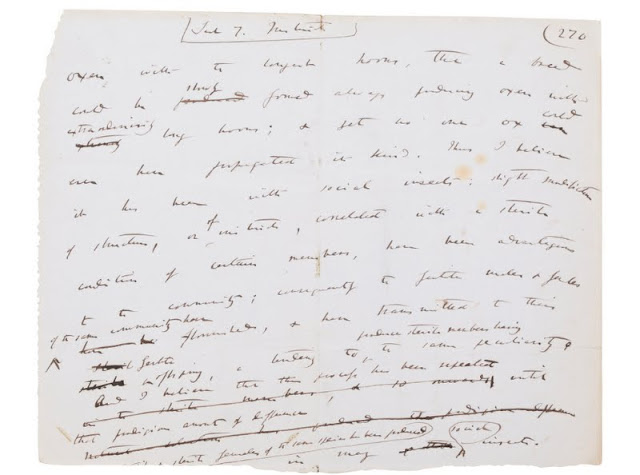 Sect 7. Instinct (270
oxen with the longest horns, that a breed
could be slowly produced formed always producing oxen with
extraordinarily strong long horns; & yet no one ox could
ever have propagated its kind. Thus I believe
it has been with social insects: slight modification
of structure, or of instinct, correlated with a sterile
condition of certain members, has been advantageous
to the community; consequently the fertile males & females
of the same community have flourished, & have transmitted to their
fertile offspring, a tendency to produce sterile members having the same peculiarity
And I believe that this process has been repeated until
that prodigious amount of difference
sterile females of the same species has been produced
in many social insects.